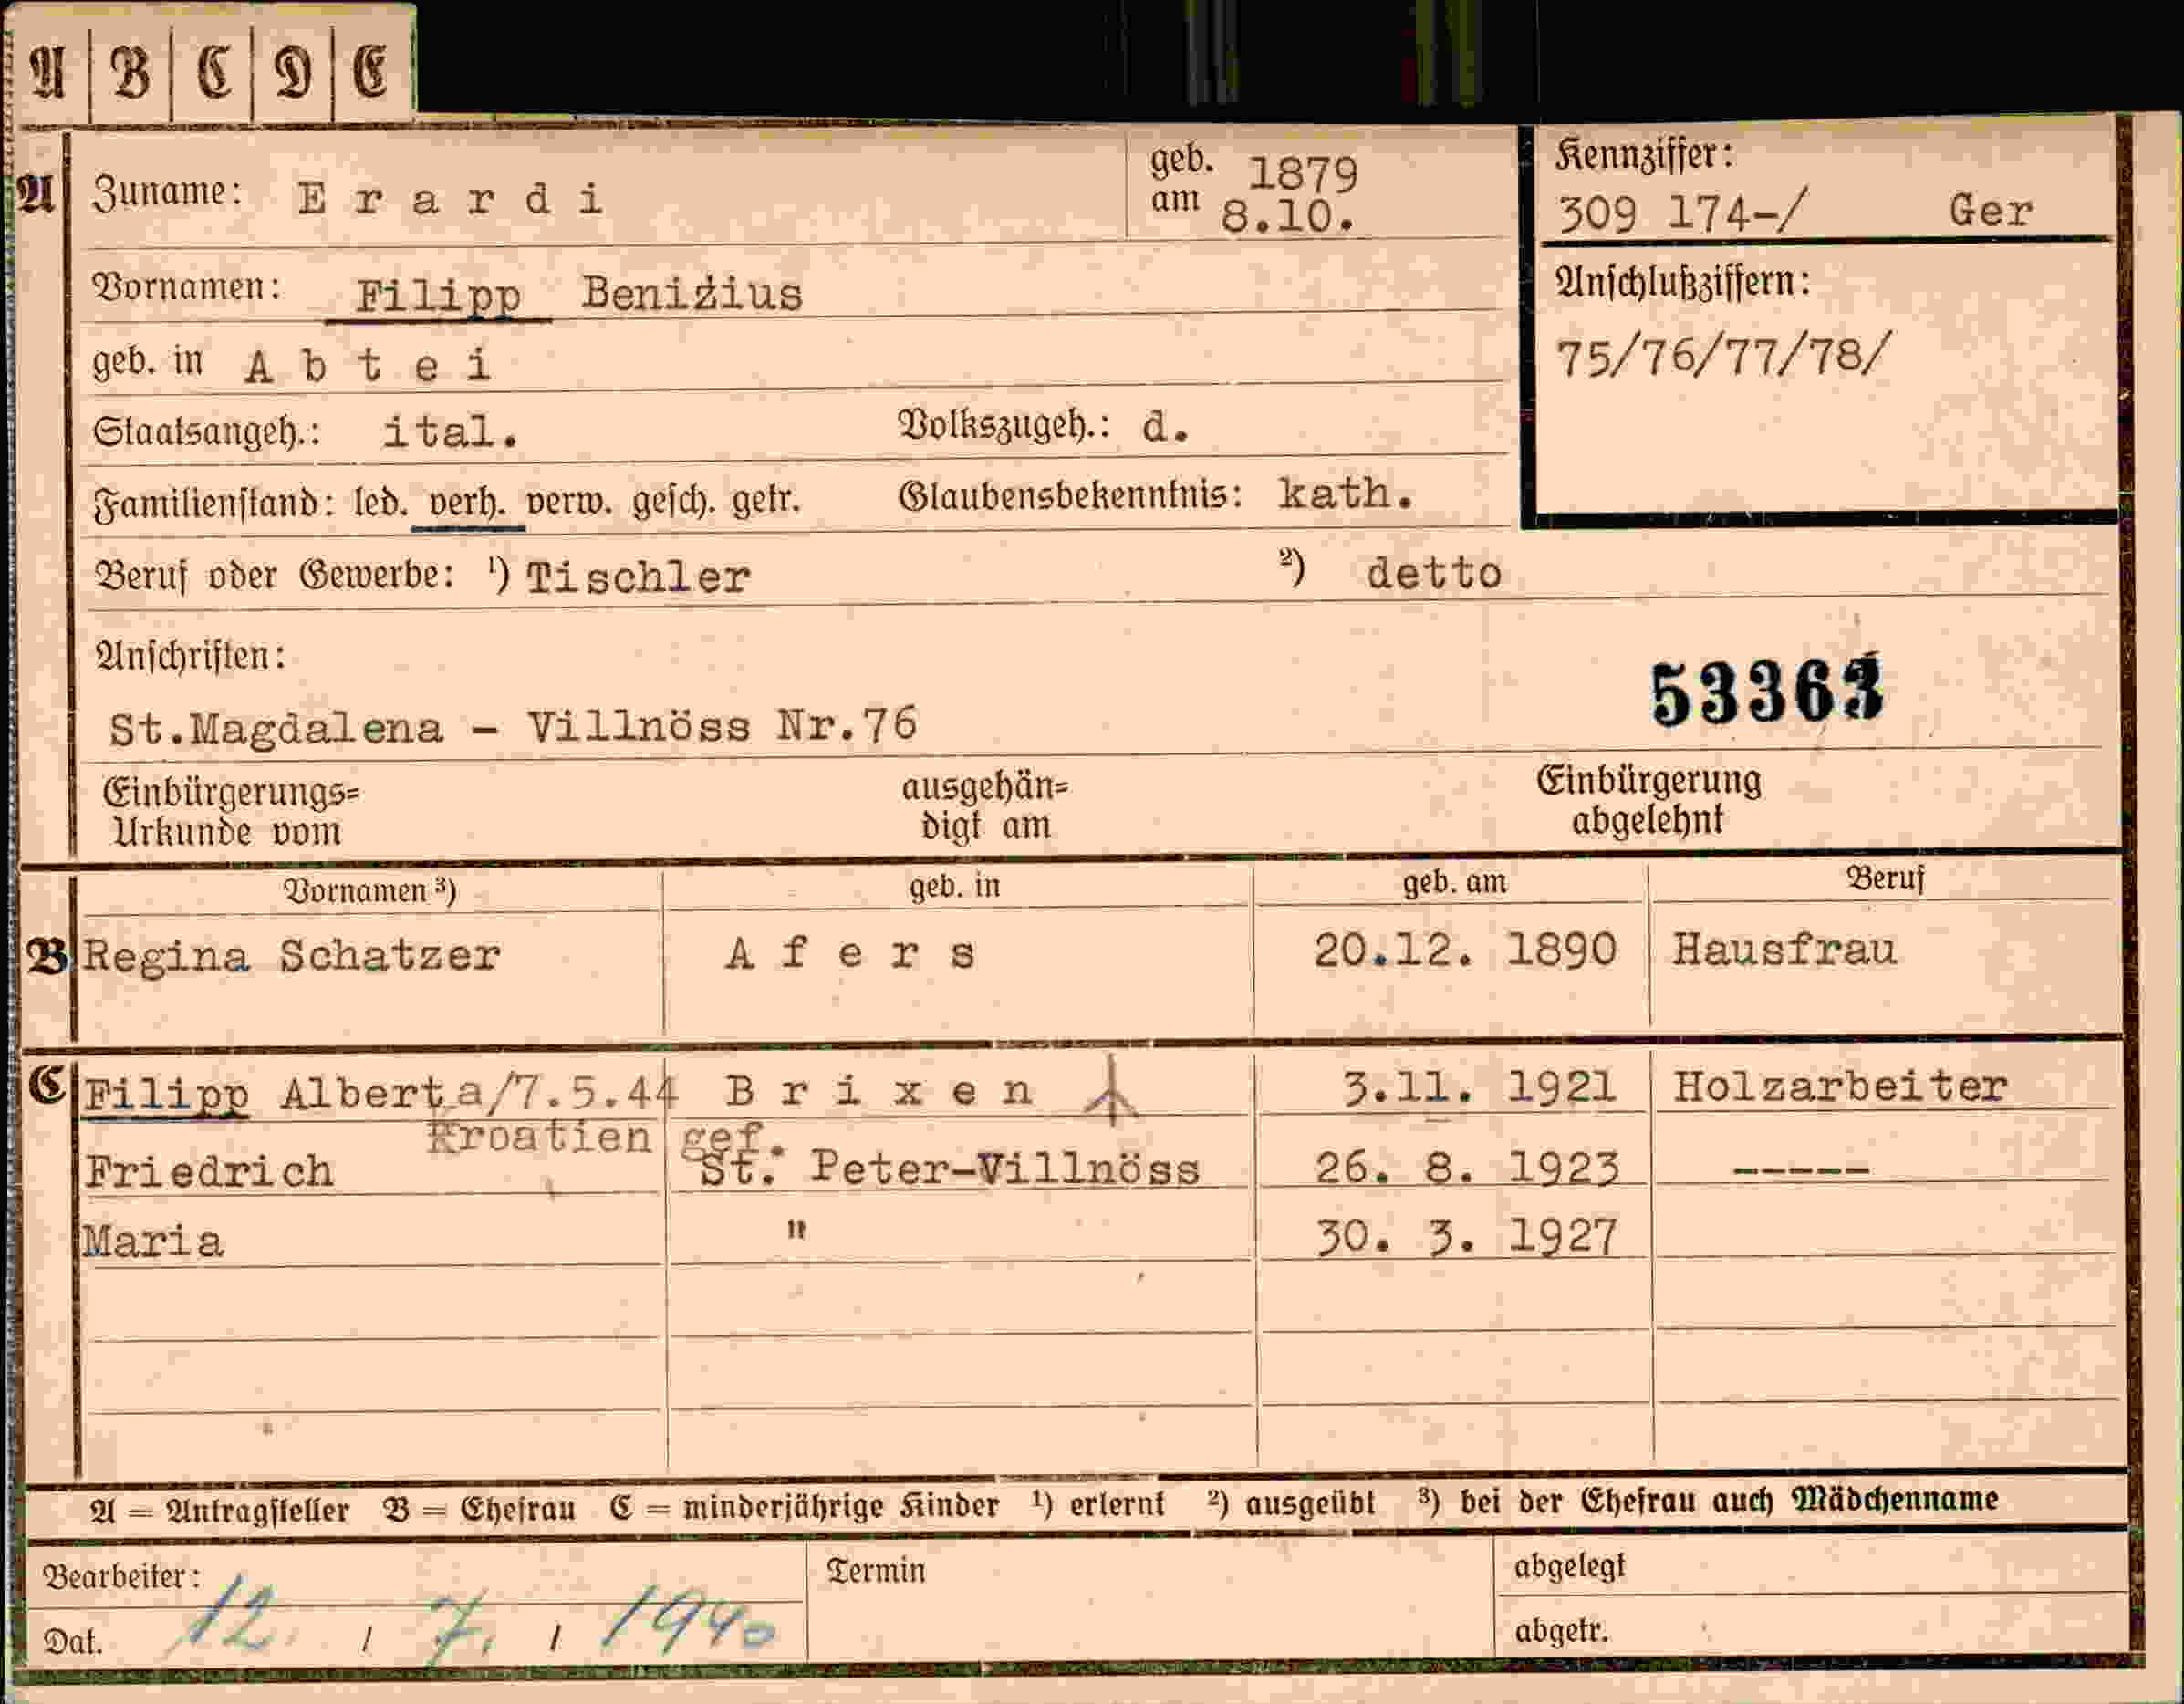 A B C D E
A Zuname: E r a r d i geb. am 1879 8.10.
Kennziffer:
309 174-/ Ger
Vornamen: Filipp Benizius
Anschlußziffern:
75/76/77/78/
geb. in A b t e i
Staatsangeh.: ital. Volkszugeh.: d.
Familienstand: led. verh. verw. gesch. getr. Glaubensbekenntnis: kath.
Beruf oder Gewerbe: ¹) Tischler ²) detto
Anschriften:
53363
St.Magdalena - Villnöss Nr.76
Einbürgerungs= ausgehän= Einbürgerung
Urkunde vom digt am abgelehnt
Vornamen ³) geb. in geb. am Beruf
B Regina Schatzer A f e r s 20.12. 1890 Hausfrau
C Filipp Albert a/7.5.44 B r i x e n 3.11. 1921 Holzarbeiter
Kroatien gef.
Friedrich St. Peter-Villnöss 26. 8. 1923 -----
Maria " 30. 3. 1927
A = Antragsteller B = Ehefrau C = minderjährige Kinder ¹) erlernt ²) ausgeübt ³) bei der Ehefrau auch Mädchenname
Bearbeiter: Termin abgelegt
Dat. 12. / 7. / 1940 abgetr.